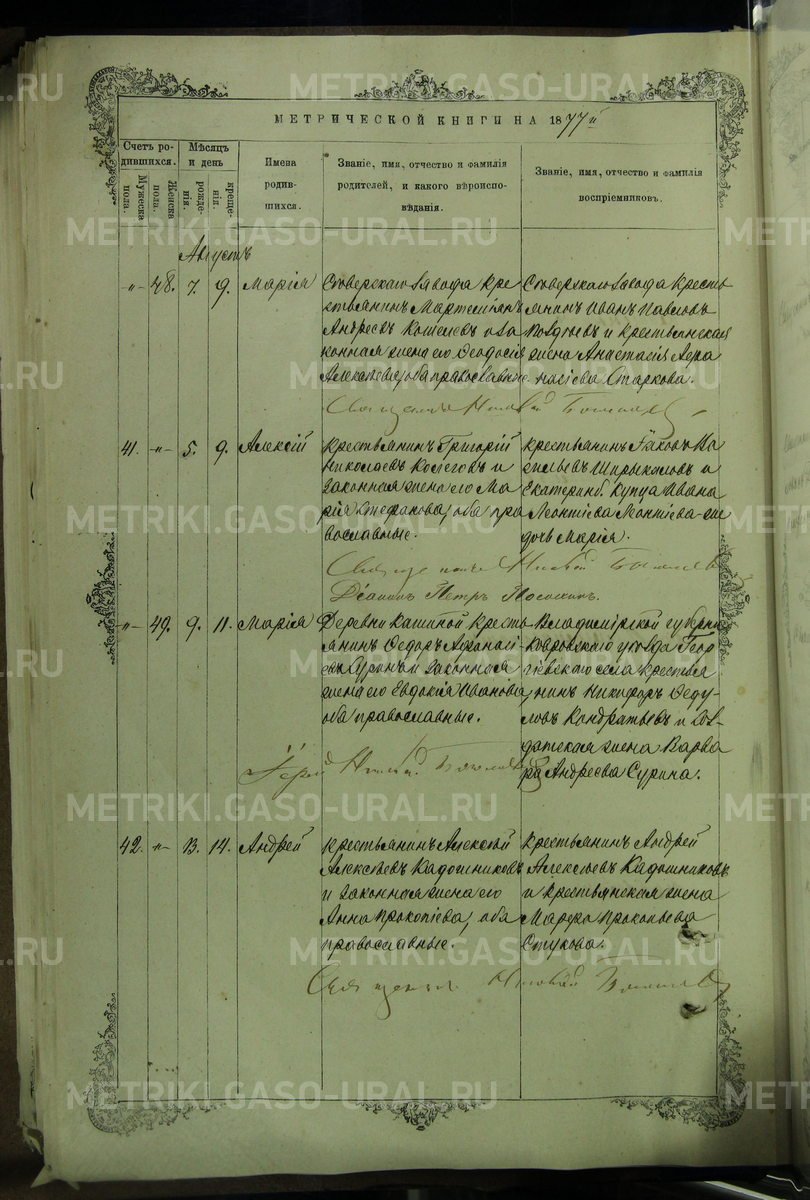 METRIKI.GASO-URAL.RU
МЕТРИЧЕСКОЙ КНИГИ НА 1877й
Счетъ родившихся.
Мужеска пола.
Женска пола.
Мѣсяцъ и день
рожденія.
крещенія.
Имена родившихся.
Званіе, имя, отчество и фамилія
родителей, и какого вѣроиспо-
вѣданія.
Званіе, имя, отчество и фамилія
воспріемниковъ.
Августъ
-„- 48. 7. 9. Марія
Сѣверскаго завода кре
стьянинъ Мартемьянъ
Андреевъ Кошелевъ и за
конная жена его Ѳеодосія
Алексѣева, оба православные
Сѣверскаго завода кресть
янинъ Иванъ Павловъ
и крестьянская
жена Анастасія
Старкова.
Священникъ
41. -„- 5. 9. Алексій
крестьянинъ Григорій
Николаевъ и
законная жена его Ма
рія Стефанова, оба пра
вославные.
крестьянинъ Яковъ Ва
сильевъ и
Екатеринб. купца Ивана
Леонтіева
дочь Марія.
Діаконъ Петръ
-„- 49. 9. 11. Марія
Деревни Кашиной кресть
янинъ Ѳедоръ Аѳанасі
евъ Суринъ и законная
жена его Евдокія Иванова,
оба православные.
Владимірской губерніи
Ковровскаго уѣзда Геор
гіевскаго села крестья
нинъ Никифоръ Ѳеду
ловъ Кондратьевъ и сол-
датская жена Варва
ра Андреева Сурина.
Іерей
42. -„- 13. 14. Андрей
крестьянинъ Алексѣй
Алексѣевъ Кадошниковъ
и законная жена его
Анна Прокопіева, оба
православные.
крестьянинъ Андрей
Алексѣевъ Кадошниковъ
и крестьянская жена
Марѳа Прокопьева
Стукова.
Священникъ